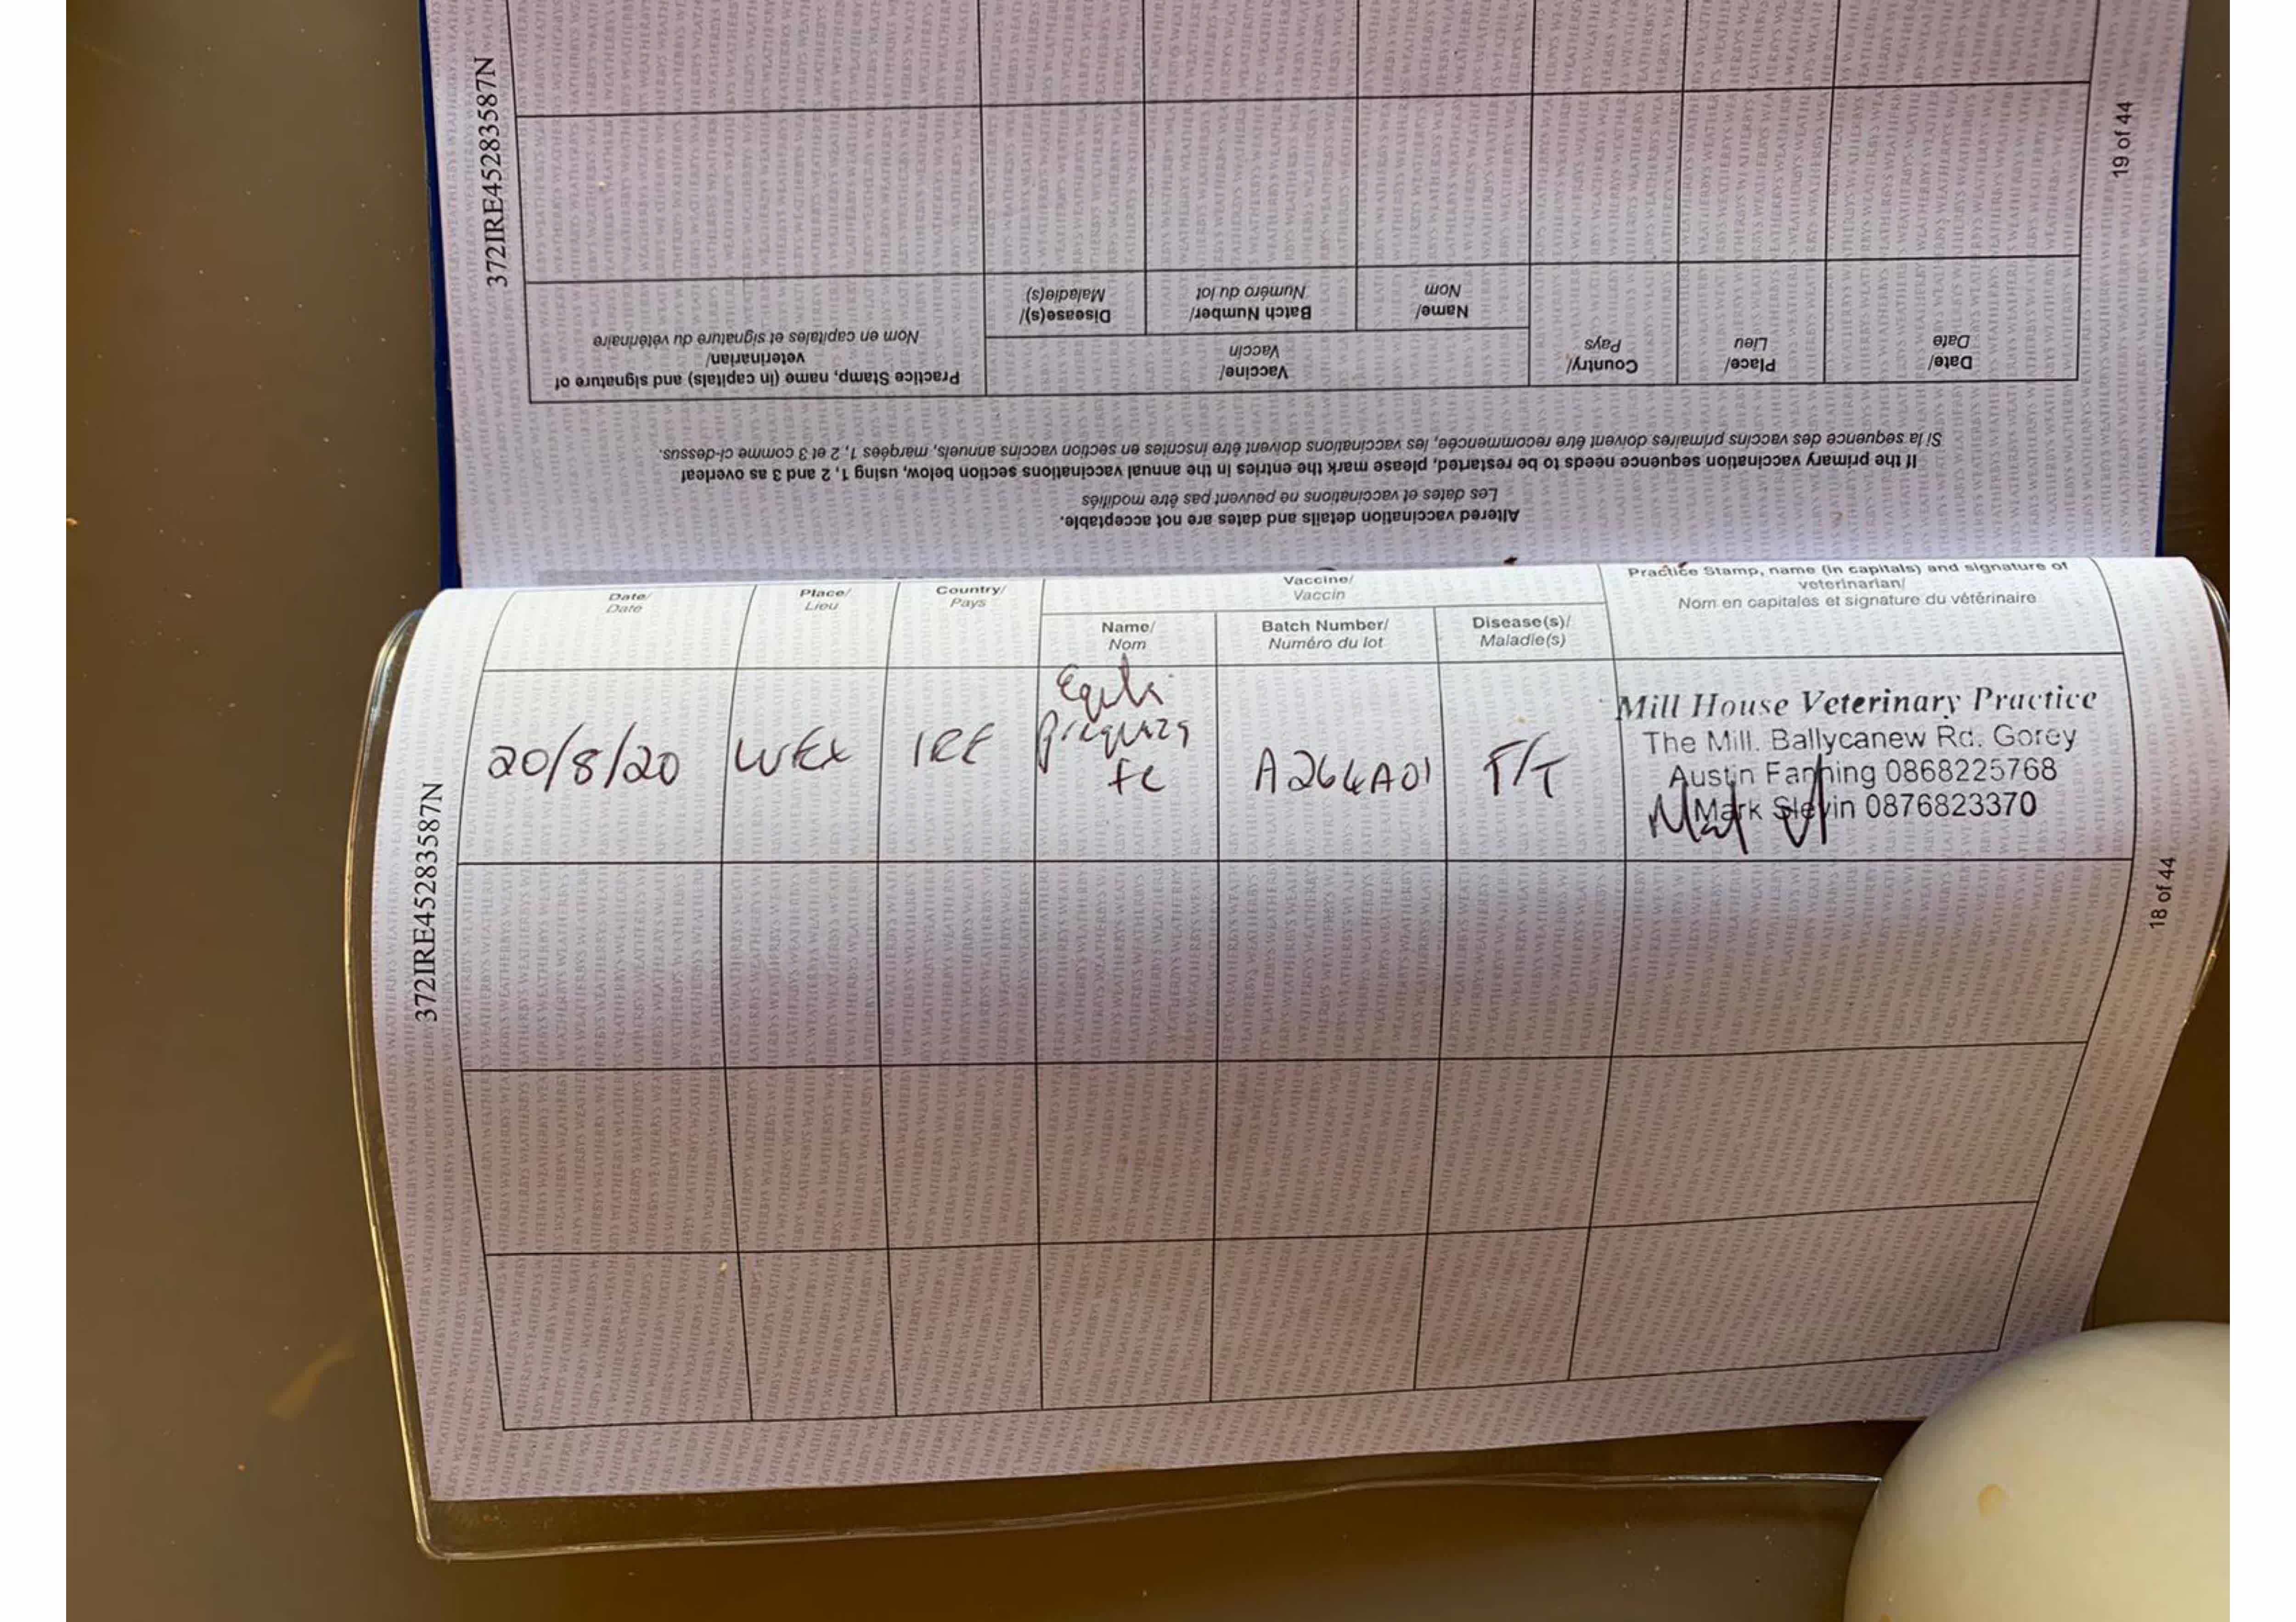 372IRE452835587N
19 of 44
Altered vaccination details and dates are not acceptable.
Les dates et vaccinations ne peuvent pas être modifiés
If the primary vaccination sequence needs to be restarted, please mark the entries in the annual vaccinations section below, using 1, 2 and 3 as overleaf
Si la séquence des vaccins primaires doivent être recommencée, les vaccinations doivent être inscrites en section vaccins annuels, marquées 1, 2 et 3 comme ci-dessus.
Date/
Date
Place/
Lieu
Country/
Pays
Vaccine/
Vaccin
Name/
Nom
Batch Number/
Numéro du lot
Disease(s)/
Maladie(s)
Practice Stamp, name (in capitals) and signature of
veterinarian/
Nom en capitales et signature du vétérinaire
372IRE452835587N
18 of 44
Date/
Date
Place/
Lieu
Country/
Pays
Vaccine/
Vaccin
Name/
Nom
Batch Number/
Numéro du lot
Disease(s)/
Maladie(s)
Practice Stamp, name (in capitals) and signature of
veterinarian/
Nom en capitales et signature du vétérinaire
20/8/20
WEX
IRE
Te
A264A01
F/T
Mill House Veterinary Practice
The Mill. Ballycanew Rd. Gorey
Austin Fanning 0868225768
Mark Slevin 0876823370